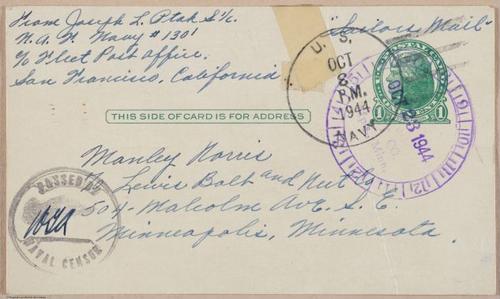 From Joseph L. Ptak S 1/c.
"Sailors Mail"
N.A.F. Navy #1301
c/o Fleet Post Office.
San Francisco, California
U. S. NAVY
OCT
8
P.M.
1944
OCT 23 1944
1 1
THIS SIDE OF CARD IS FOR ADDRESS
Manley Norris
c/o Lewis Bolt and Nut
504 - Malcolm Ave S. E.
Minneapolis, Minnesota.
PASSED BY
NAVAL CENSOR